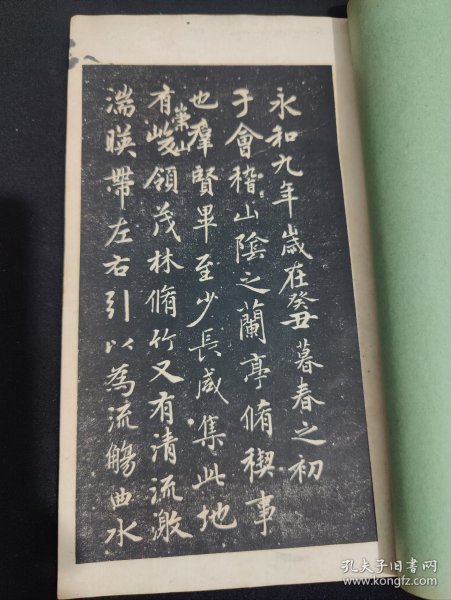 永和九年歲在癸丑暮春之初
于會稽山陰之蘭亭脩禊事
也羣賢畢至少長咸集此地
有崇山峻領茂林脩竹又有清流激
湍暎帶左右引以為流觴曲水
孔夫子旧书网
www.kongfz.com